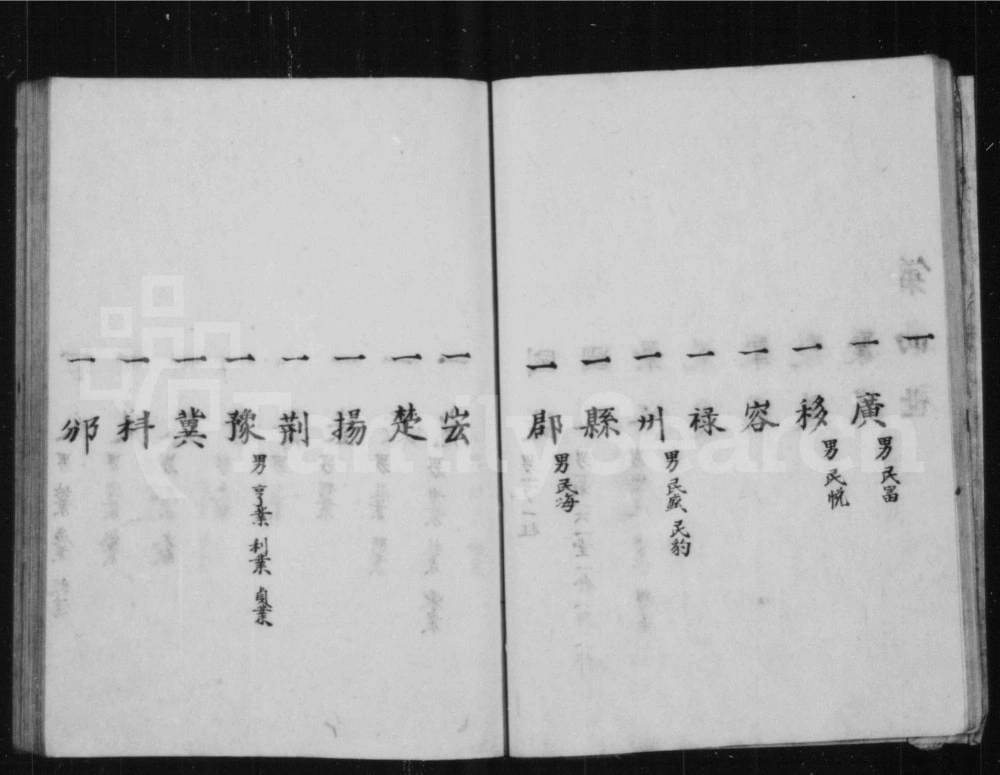 一
一廣 男 民富
一移 男 民悅
一容
一祿 男 民嚴 民豹
一州
一縣
一郡 男 民海
一宏
一楚
一揚
一荆
一豫 男 亨業 利業 貞業
一冀
一科
一邠
FamilySearch